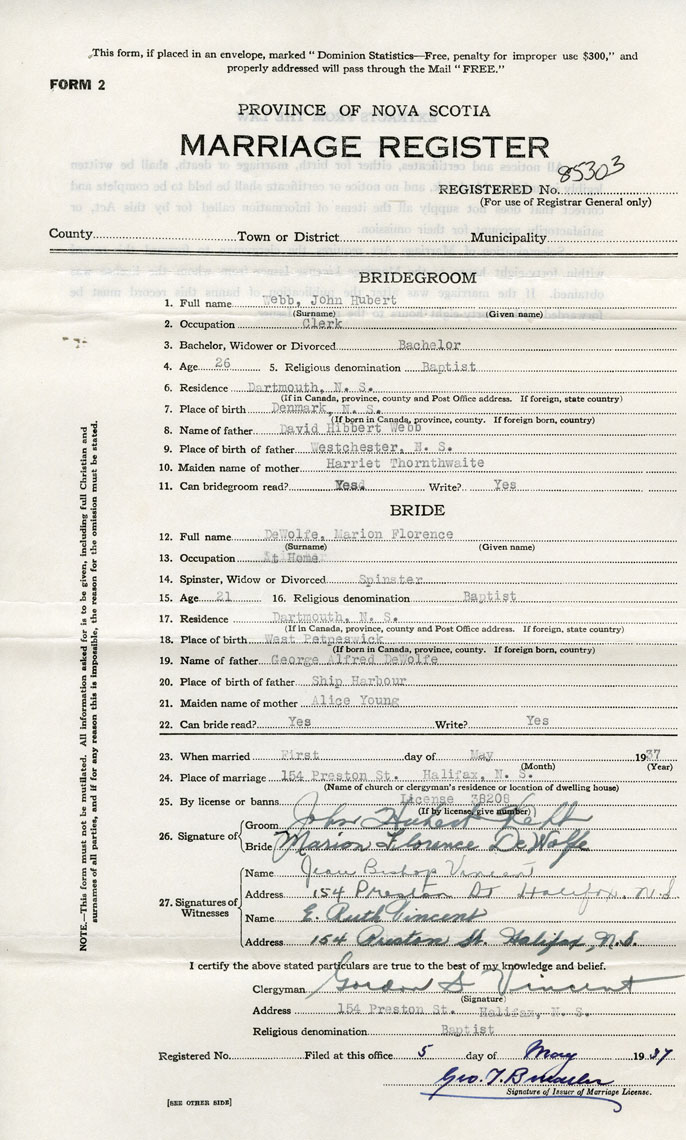 This form, if placed in an envelope, marked "Dominion Statistics—Free, penalty for improper use $300," and
properly addressed will pass through the Mail "FREE."
FORM 2
PROVINCE OF NOVA SCOTIA
MARRIAGE REGISTER
REGISTERED No. 85303
(For use of Registrar General only)
County Town or District Municipality
BRIDEGROOM
1. Full name Webb, John Hubert
(Surname) (Given name)
2. Occupation Clerk
3. Bachelor, Widower or Divorced Bachelor
4. Age 26 5. Religious denomination Baptist
6. Residence Dartmouth, N. S.
(If in Canada, province, county and Post Office address. If foreign, state country)
7. Place of birth Denmark, N. S.
(If born in Canada, province, county. If foreign born, country)
8. Name of father David Hibbert Webb
9. Place of birth of father Westchester, N. S.
10. Maiden name of mother Harriet Thornthwaite
11. Can bridegroom read? Yes. Write? Yes
BRIDE
12. Full name DeWolfe, Marion Florence
(Surname) (Given name)
13. Occupation At Home
14. Spinster, Widow or Divorced Spinster
15. Age 21 16. Religious denomination Baptist
17. Residence Dartmouth, N. S.
(If in Canada, province, county and Post Office address. If foreign, state country)
18. Place of birth West Petpeswick
(If born in Canada, province, county. If foreign born, country)
19. Name of father George Alfred DeWolfe
20. Place of birth of father Ship Harbour
21. Maiden name of mother Alice Young
22. Can bride read? Yes Write? Yes
23. When married First day of May 1937
(Month) (Year)
24. Place of marriage 154 Preston St. Halifax, N. S.
(Name of church or clergyman's residence or location of dwelling house)
25. By license or banns License 38208
(If by license, give number)
26. Signature of Groom John Hubert Webb
Bride Marion Florence DeWolfe
27. Signatures of Witnesses
Name Jean Bishop Vincent
Address 154 Preston St Halifax, N.S.
Name E. Ruth Vincent
Address 154 Preston St. Halifax, N.S.
I certify the above stated particulars are true to the best of my knowledge and belief.
Clergyman Gordon S Vincent
(Signature)
Address 154 Preston St. Halifax, N. S.
Religious denomination Baptist
Registered No. Filed at this office 5 day of May 1937
Geo. T.
Signature of Issuer of Marriage License.
[SEE OTHER SIDE]
NOTE.—This form must not be mutilated. All information asked for is to be given, including full Christian and
surnames of all parties, and if for any reason this is impossible, the reason for the omission must be stated.